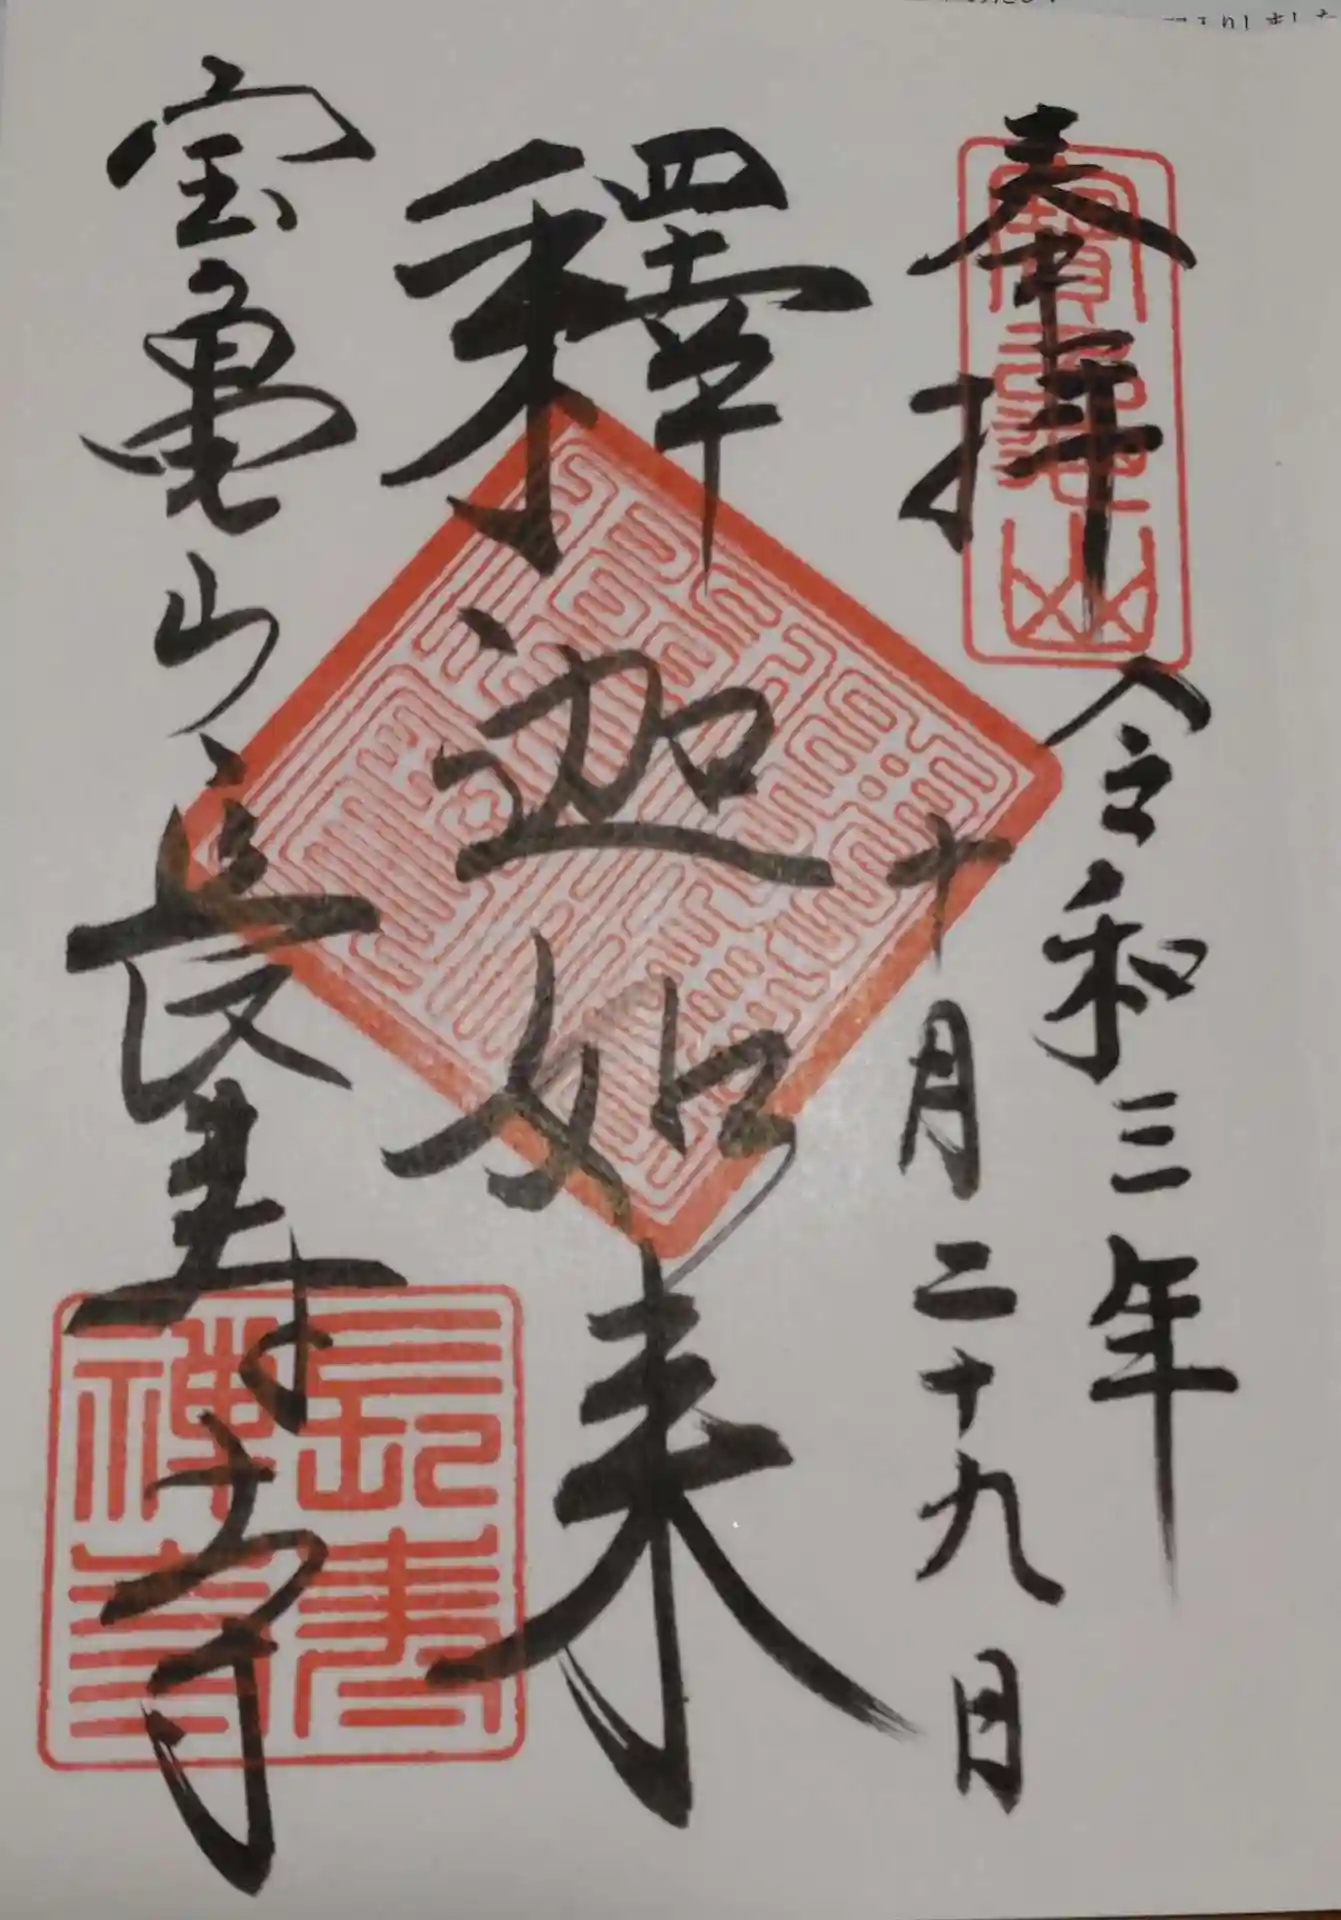 奉拝
令和三年
十月二十九日
釋迦如来
宝亀山長寿寺
長寿
禅寺